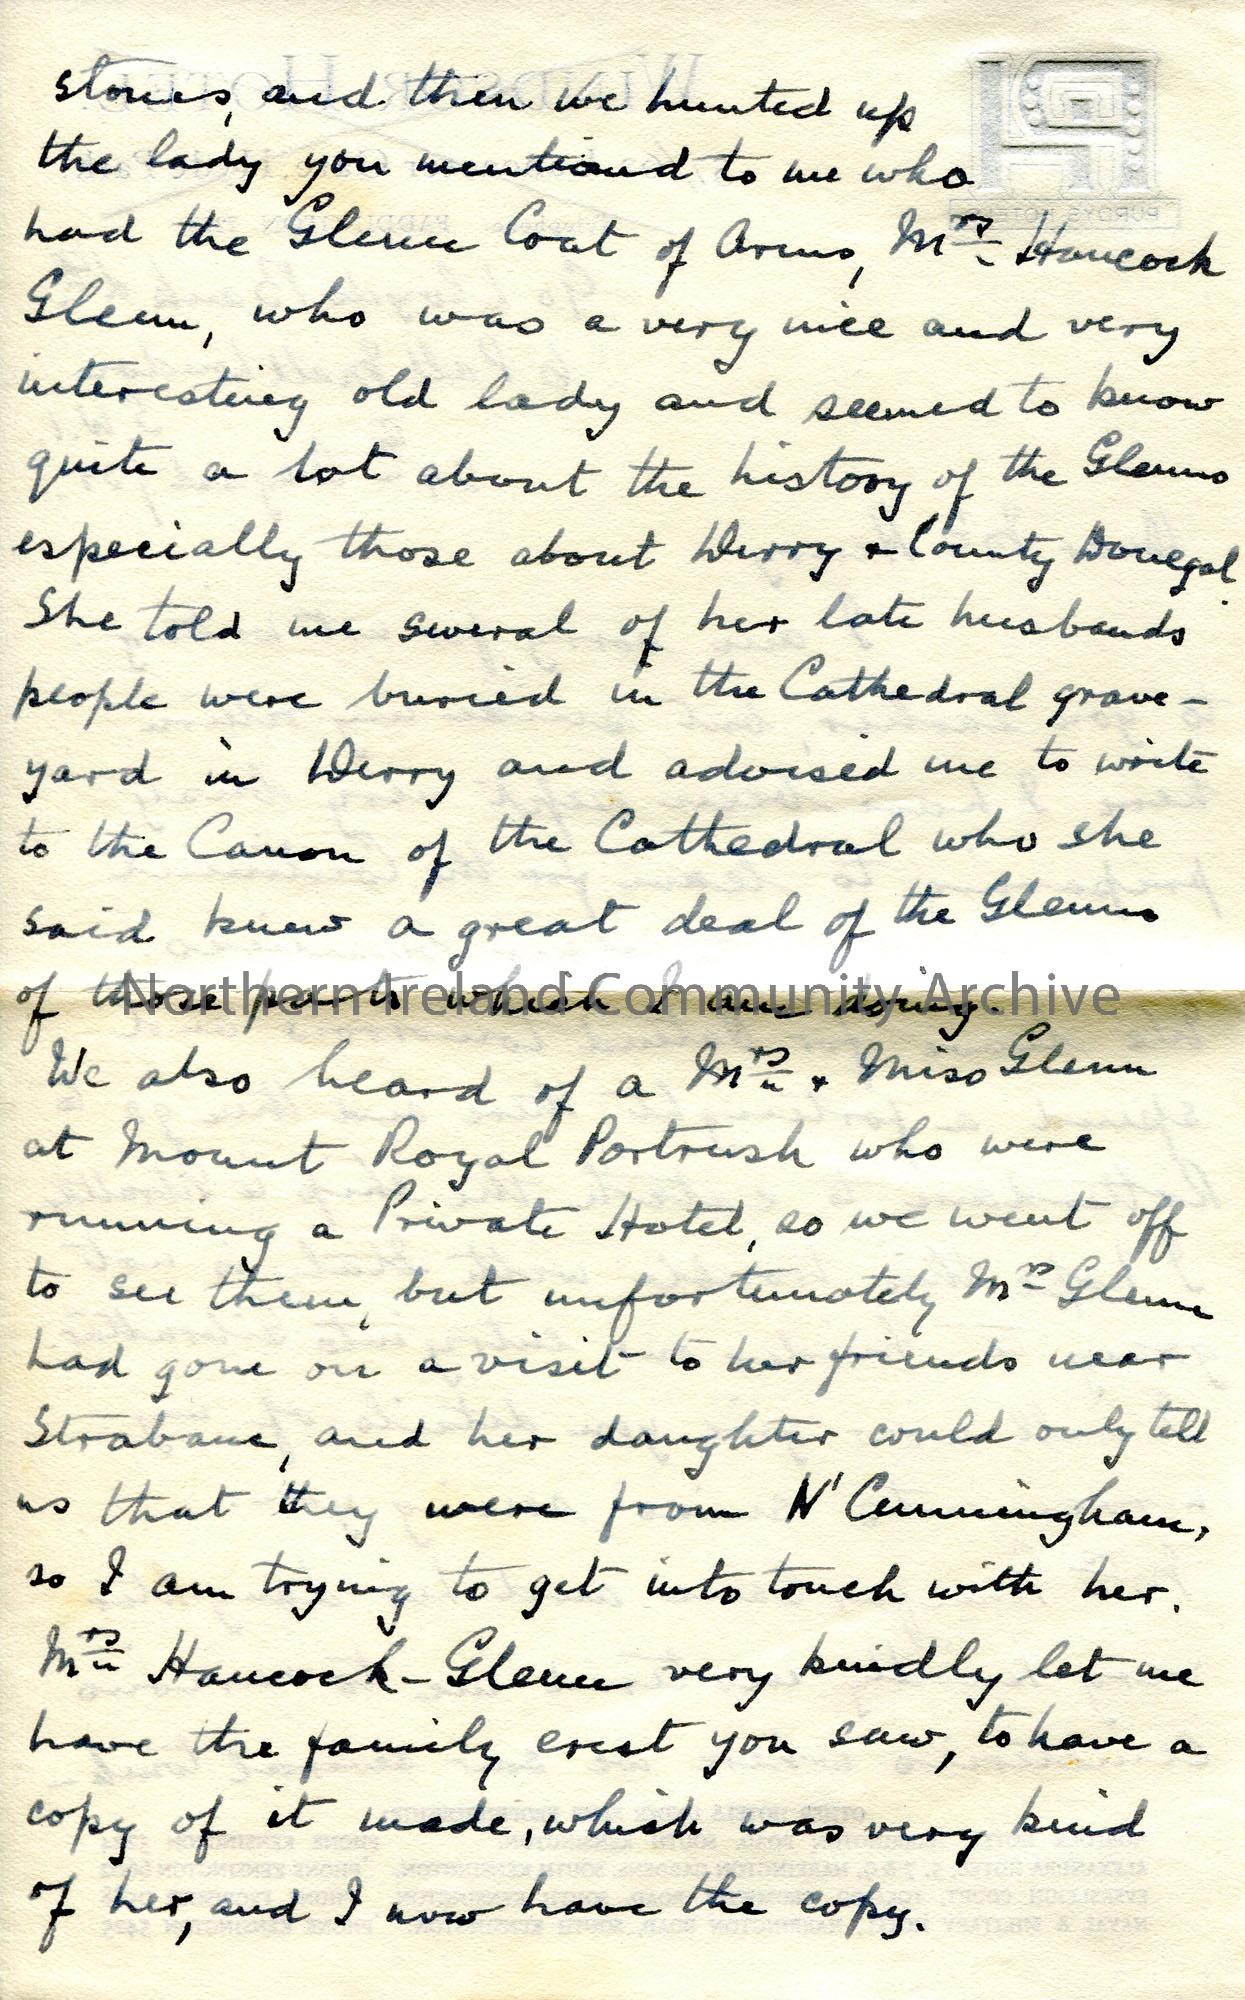 stories, and then we hunted up
the lady you mentioned to me who
had the Glenn Coat of Arms, Mrs Hancock
Glenn, who was a very nice and very
interesting old lady and seemed to know
quite a lot about the history of the Glenns
especially those about Derry & County Donegal.
She told me several of her late husbands
people were buried in the Cathedral grave-
yard in Derry and advised me to write
to the Canon of the Cathedral who she
said knew a great deal of the Glenns
of those parts which I am doing.
Northern Ireland Community Archive
We also heard of a Mrs & Miss Glenn
at Mount Royal Portrush who were
running a Private Hotel, so we went off
to see them, but unfortunately Mrs Glenn
had gone on a visit to her friends near
Strabane, and her daughter could only tell
us that they were from N' Cunningham,
so I am trying to get into touch with her.
Mrs Hancock-Glenn very kindly let me
have the family crest you saw, to have a
copy of it made, which was very kind
of her, and I now have the copy.